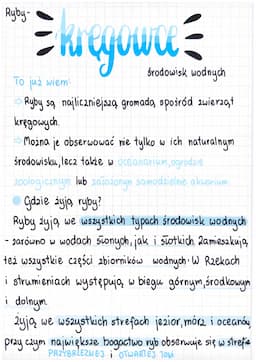 Ryby-
kręgowce
środowisk wodnych
To już wiem:
Ryby są najliczniejszą gromadą spośród zwierząt
kręgowych.
Można je obserwować nie tylko w ich naturalnym
środowisku, lecz także w oceanarium, ogrodzie
zoologicznym lub założonym samodzielnie akwarium.
Gdzie żyją ryby?
Ryby żyją we wszystkich typach środowisk wodnych
- zarówno w wodach słonych, jak i słodkich. Zamieszkują
też wszystkie części zbiorników wodnych. W Rzekach
i strumieniach występują w biegu górnym, środkowym
i dolnym.
Żyją we wszystkich strefach jezior, mórz i oceanów,
przy czym największe bogactwo ryb obserwuje się w strefie
PRZYBRZEŻNEJ i OTWARTEJ TONI